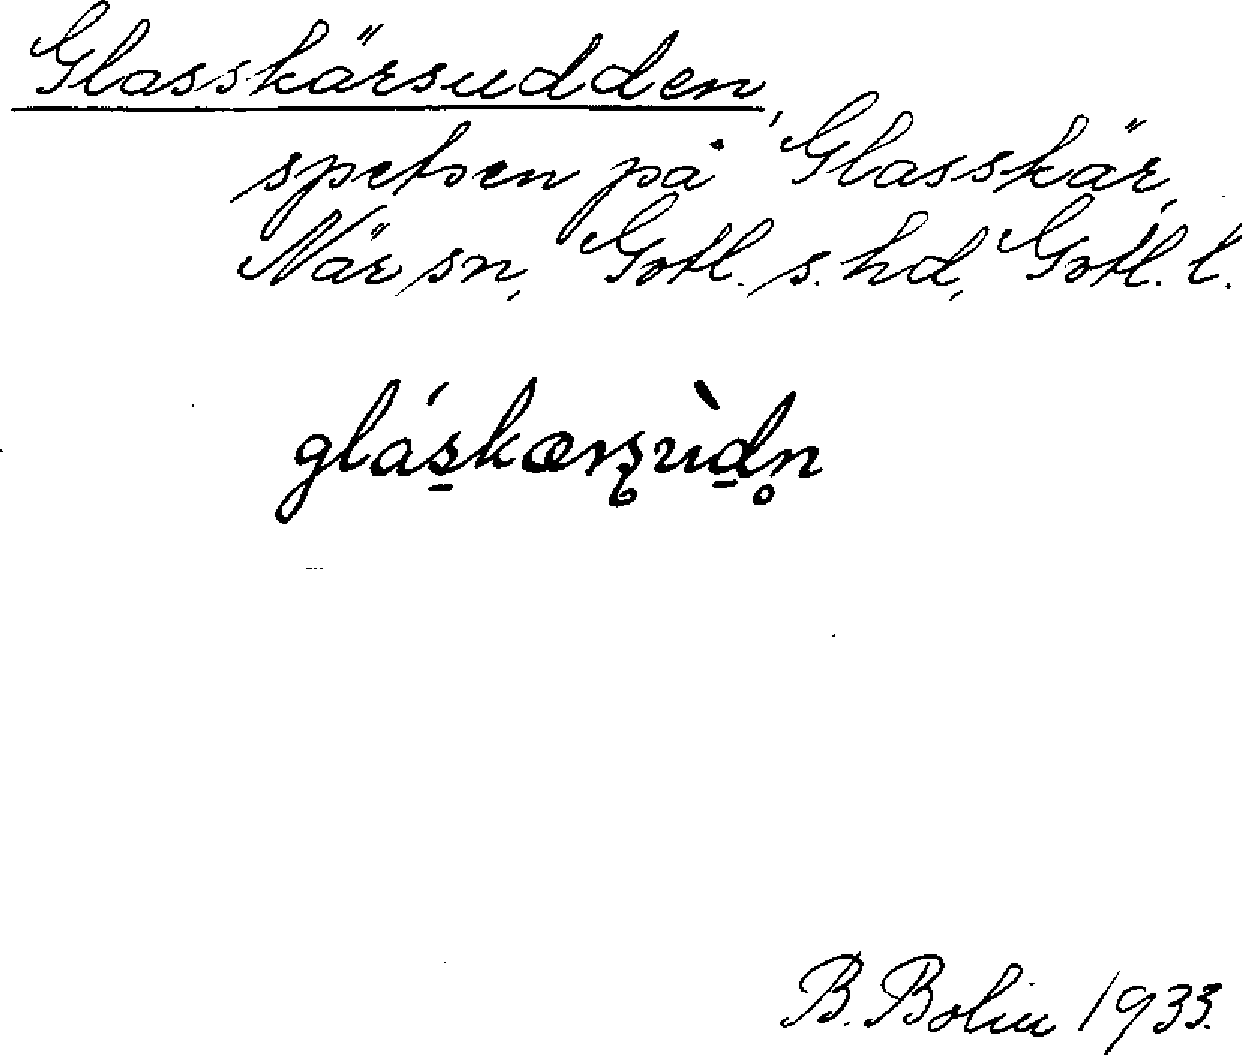 Glasskärsudden,
spetsen på Glasskär,
När sn, Gotl. s. hd, Gotl. l.
glás̱kærʂùḏn̥
B. Bolin 1933.